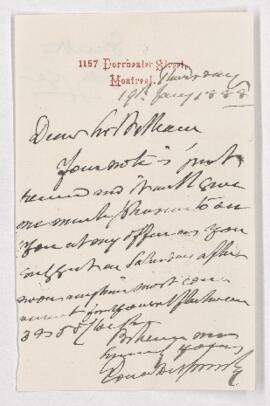 1157 Dorchester Street,
Montreal.
Thursday
19th Jany 1888
Dear Mr
Your note is just
received and it will give
me much pleasure to see
you at my office as you
suggest on Saturday after
noon any hour most con
venient for yourself between
3 and 5 o'clock
Believe me
yours